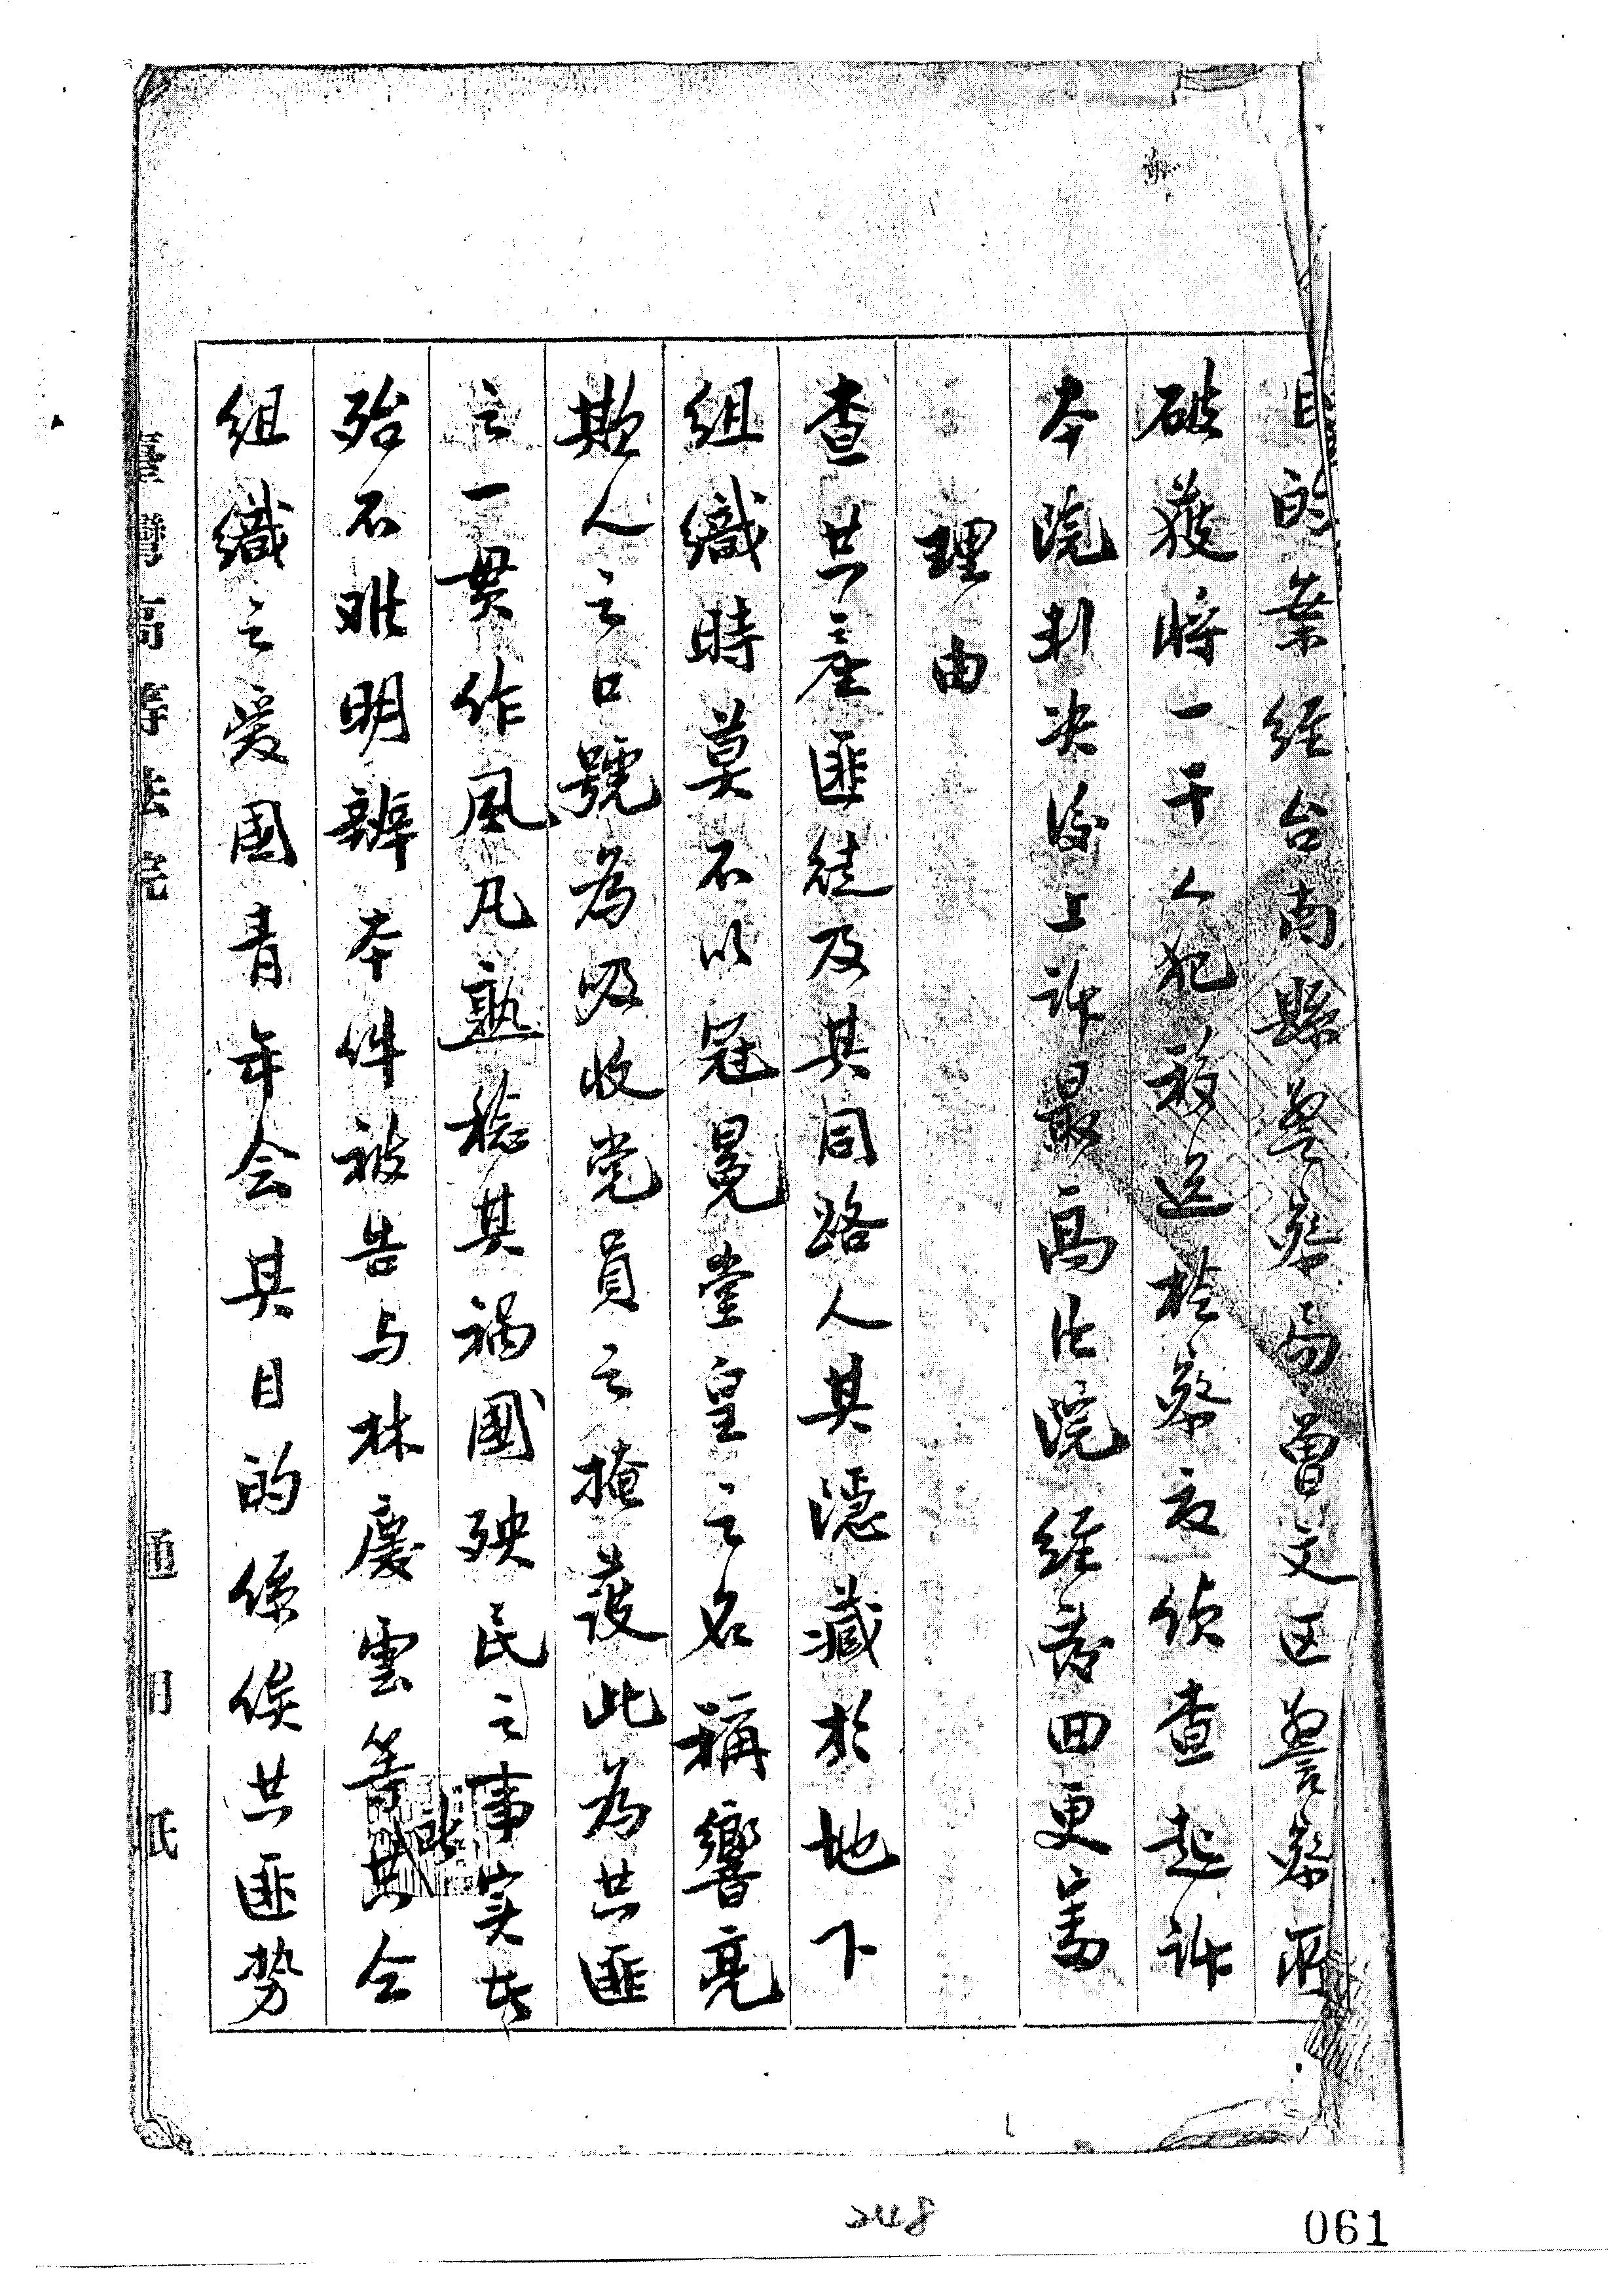 目的業經台南縣警察局曾文区警察所
破獲將一干人犯移送檢察官偵查起訴
本院判決後上訴最高法院經發回更審
理由
查共產匪徒及其同路人其隱藏於地下
組織時莫不以冠冕堂皇之名稱響亮
欺人之口號為吸收党員之掩護此為共匪
之一貫作風凡熟稔其禍國殃民之事実者
殆不难明辨本件被告与林慶雲等共仝
組織之爱國青年会其目的係俟共匪势
臺灣高等法院
通用紙
248
061